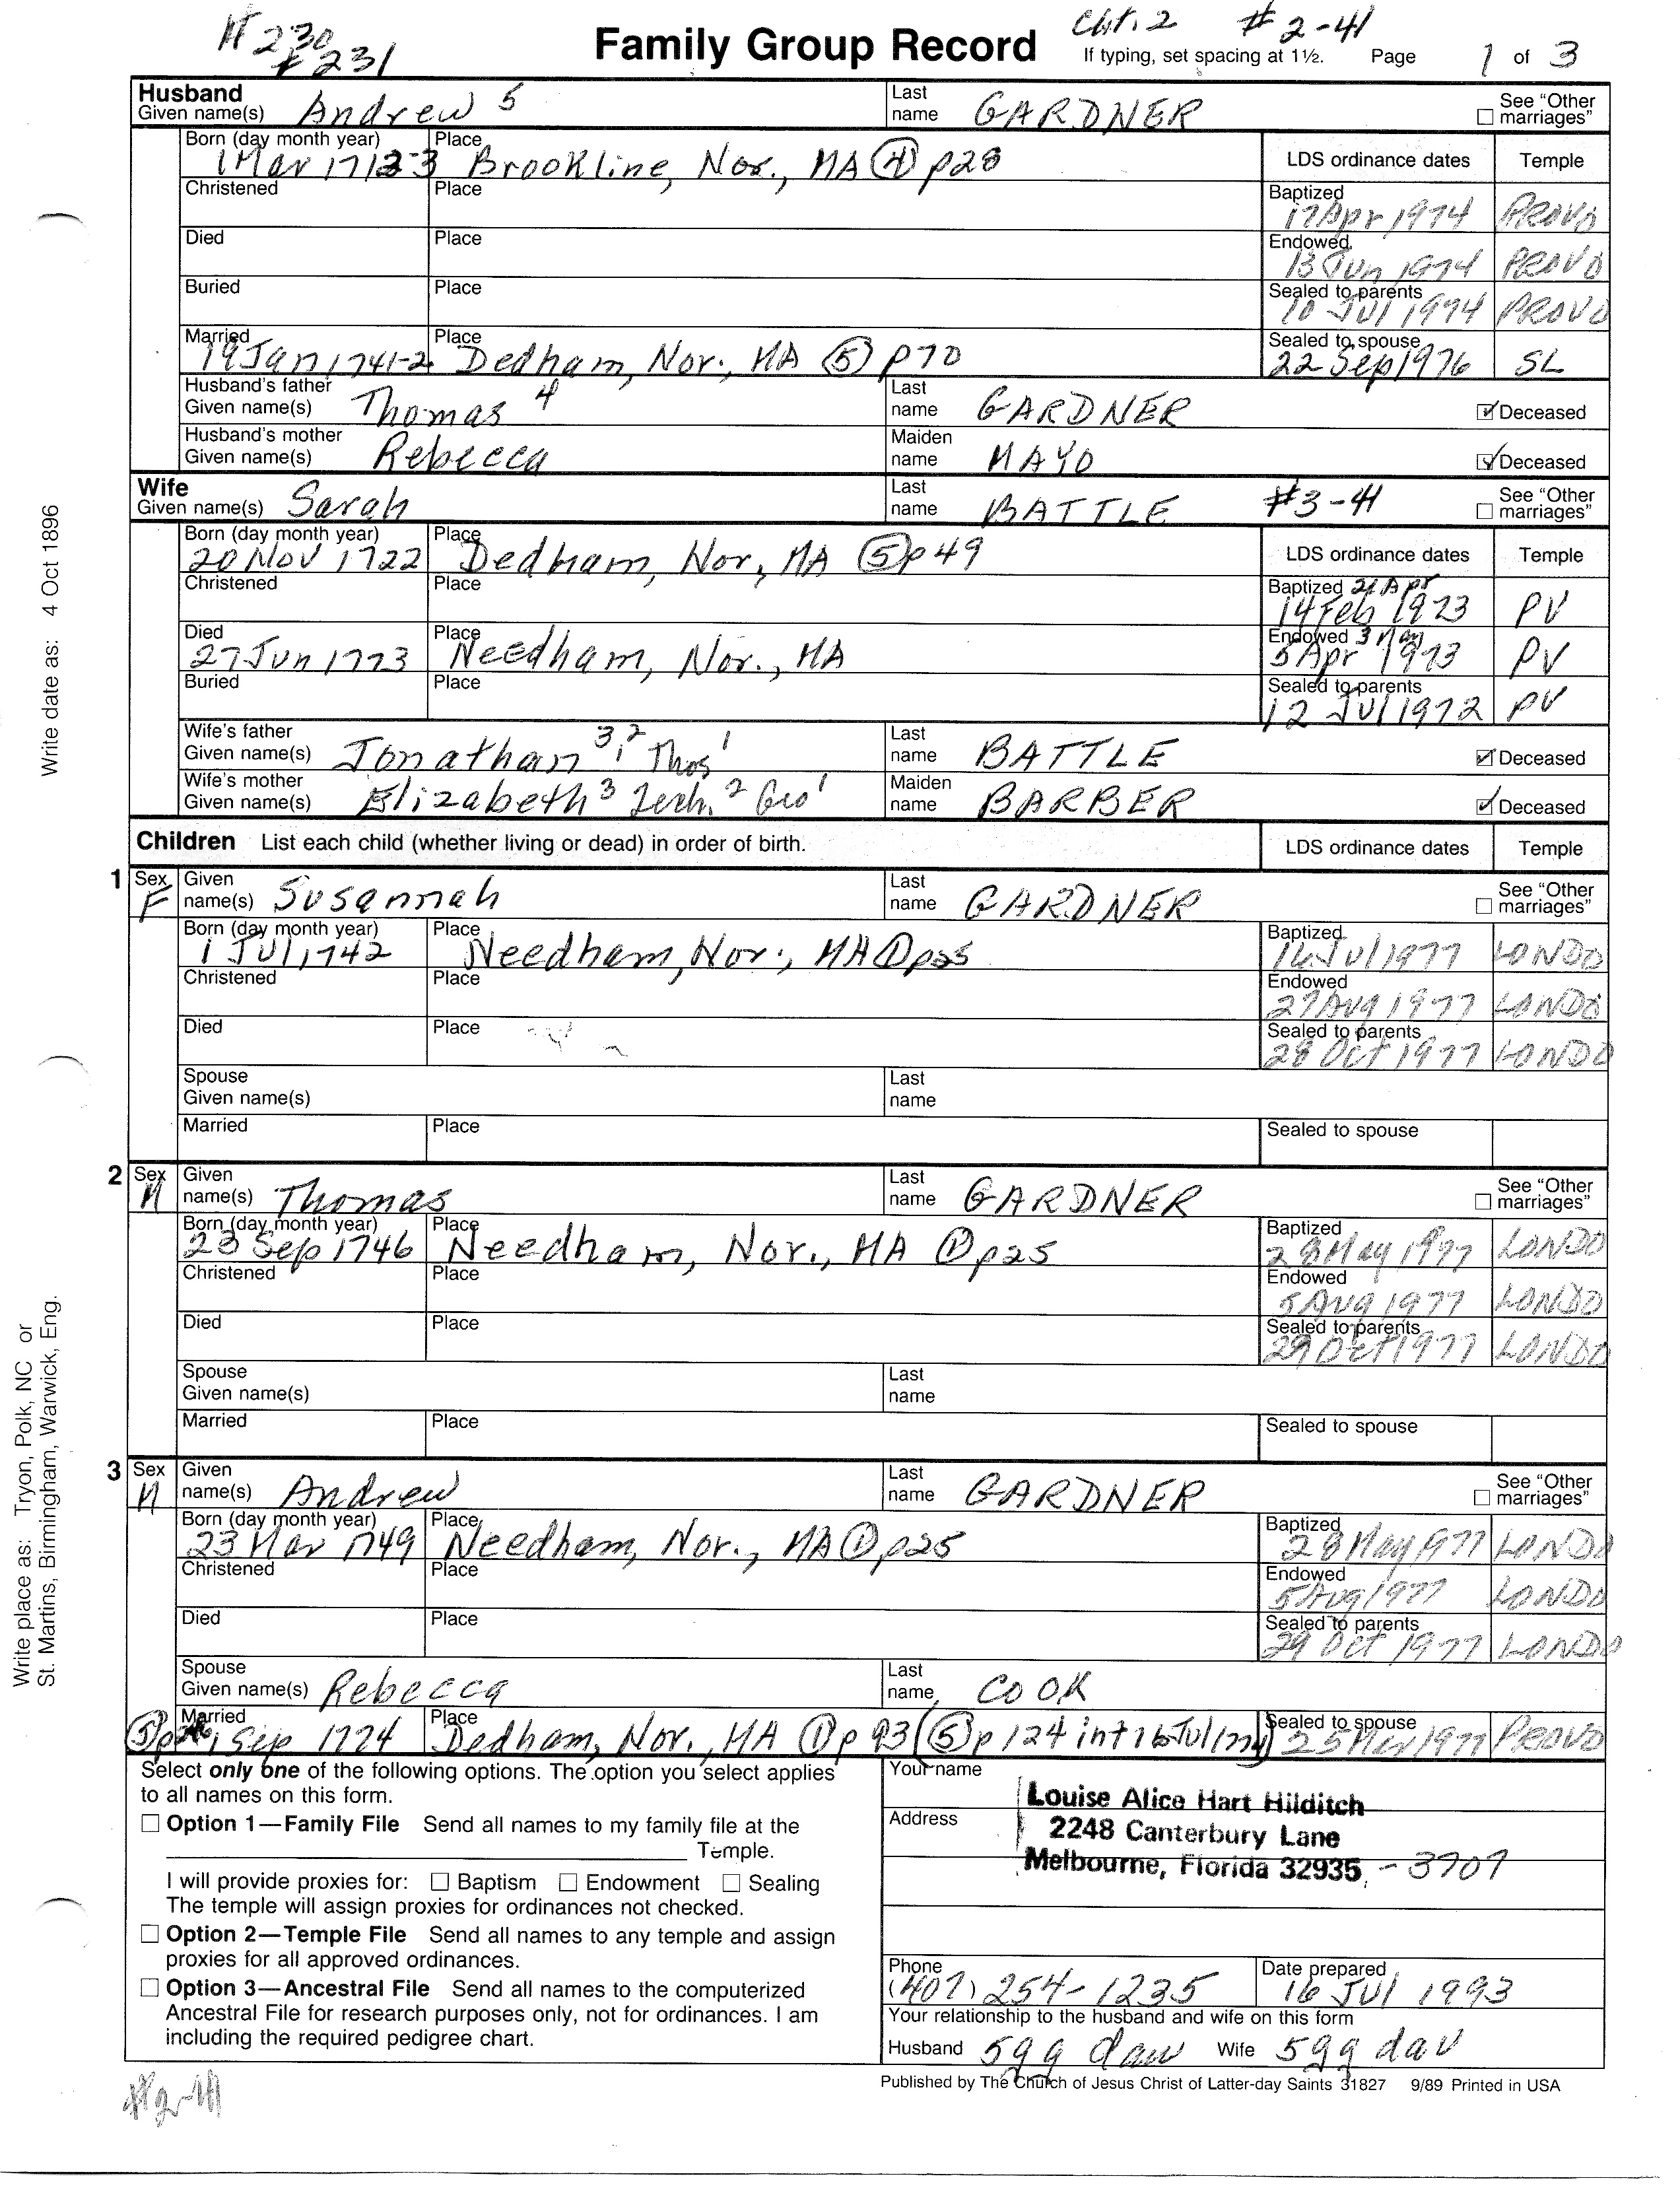 # 230
& 231
Family Group Record
Cht. 2 # 2-41
If typing, set spacing at 1½. Page 1 of 3
Husband
Given name(s) Andrew 5
Last name GARDNER
See "Other marriages"
Born (day month year) 1 Mar 1712-3
Place Brookline, Nor., MA ④ p28
LDS ordinance dates Temple
Christened Place
Baptized 17 Apr 1974 PROVO
Died Place
Endowed 13 Jun 1974 PROVO
Buried Place
Sealed to parents 10 Jul 1974 PROVO
Married 19 Jan 1741-2 Place Dedham, Nor., MA ⑤ p70
Sealed to spouse 22 Sep 1976 SL
Husband's father
Given name(s) Thomas 4
Last name GARDNER
Deceased
Husband's mother
Given name(s) Rebecca
Maiden name MAYO
Deceased
Wife
Given name(s) Sarah
Last name BATTLE #3-41
See "Other marriages"
Born (day month year) 20 Nov 1722
Place Dedham, Nor, MA ⑤ p49
LDS ordinance dates Temple
Christened Place
Baptized 21 Apr
14 Feb 1973 PV
Died 27 Jun 1773 Place Needham, Nor., MA
Endowed 3 May
5 Apr 1973 PV
Buried Place
Sealed to parents 12 Jul 1972 PV
Wife's father
Given name(s) Jonathan 3, 2 Thos 1
Last name BATTLE
Deceased
Wife's mother
Given name(s) Elizabeth 3 Zech. 2 Geo 1
Maiden name BARBER
Deceased
Children List each child (whether living or dead) in order of birth.
LDS ordinance dates Temple
1 Sex F
Given name(s) Susannah
Last name GARDNER
See "Other marriages"
Born (day month year) 1 Jul 1742
Place Needham, Nor., MA ① p25
Baptized 16 Jul 1977 LONDO
Christened Place
Endowed 27 Aug 1977 LONDO
Died Place
Sealed to parents 28 Oct 1977 LONDO
Spouse
Given name(s)
Last name
Married Place
Sealed to spouse
2 Sex M
Given name(s) Thomas
Last name GARDNER
See "Other marriages"
Born (day month year) 23 Sep 1746
Place Needham, Nor., MA ① p25
Baptized 28 May 1977 LONDO
Christened Place
Endowed 5 Aug 1977 LONDO
Died Place
Sealed to parents 29 Oct 1977 LONDO
Spouse
Given name(s)
Last name
Married Place
Sealed to spouse
3 Sex M
Given name(s) Andrew
Last name GARDNER
See "Other marriages"
Born (day month year) 23 Mar 1749
Place Needham, Nor., MA ① p25
Baptized 28 May 1977 LONDO
Christened Place
Endowed 5 Aug 1977 LONDO
Died Place
Sealed to parents 29 Oct 1977 LONDO
Spouse
Given name(s) Rebecca
Last name COOK
Married 1 Sep 1774
Place Dedham, Nor., MA ① p 93 (⑤ p 124 int 16 Jul 1774)
Sealed to spouse 1977 PROVO
Select only one of the following options. The option you select applies
to all names on this form.
Option 1—Family File Send all names to my family file at the
Temple.
I will provide proxies for: Baptism Endowment Sealing
The temple will assign proxies for ordinances not checked.
Option 2—Temple File Send all names to any temple and assign
proxies for all approved ordinances.
Option 3—Ancestral File Send all names to the computerized
Ancestral File for research purposes only, not for ordinances. I am
including the required pedigree chart.
Your name Louise Alice Hart Hilditch
Address 2248 Canterbury Lane
Melbourne, Florida 32935 - 3707
Phone (407) 254-1235
Date prepared 16 Jul 1993
Your relationship to the husband and wife on this form
Husband 5gg dau Wife 5gg dau
Published by The Church of Jesus Christ of Latter-day Saints 31827 9/89 Printed in USA
#2-41
Write date as: 4 Oct 1896
Write place as: Tryon, Polk, NC or
St. Martins, Birmingham, Warwick, Eng.